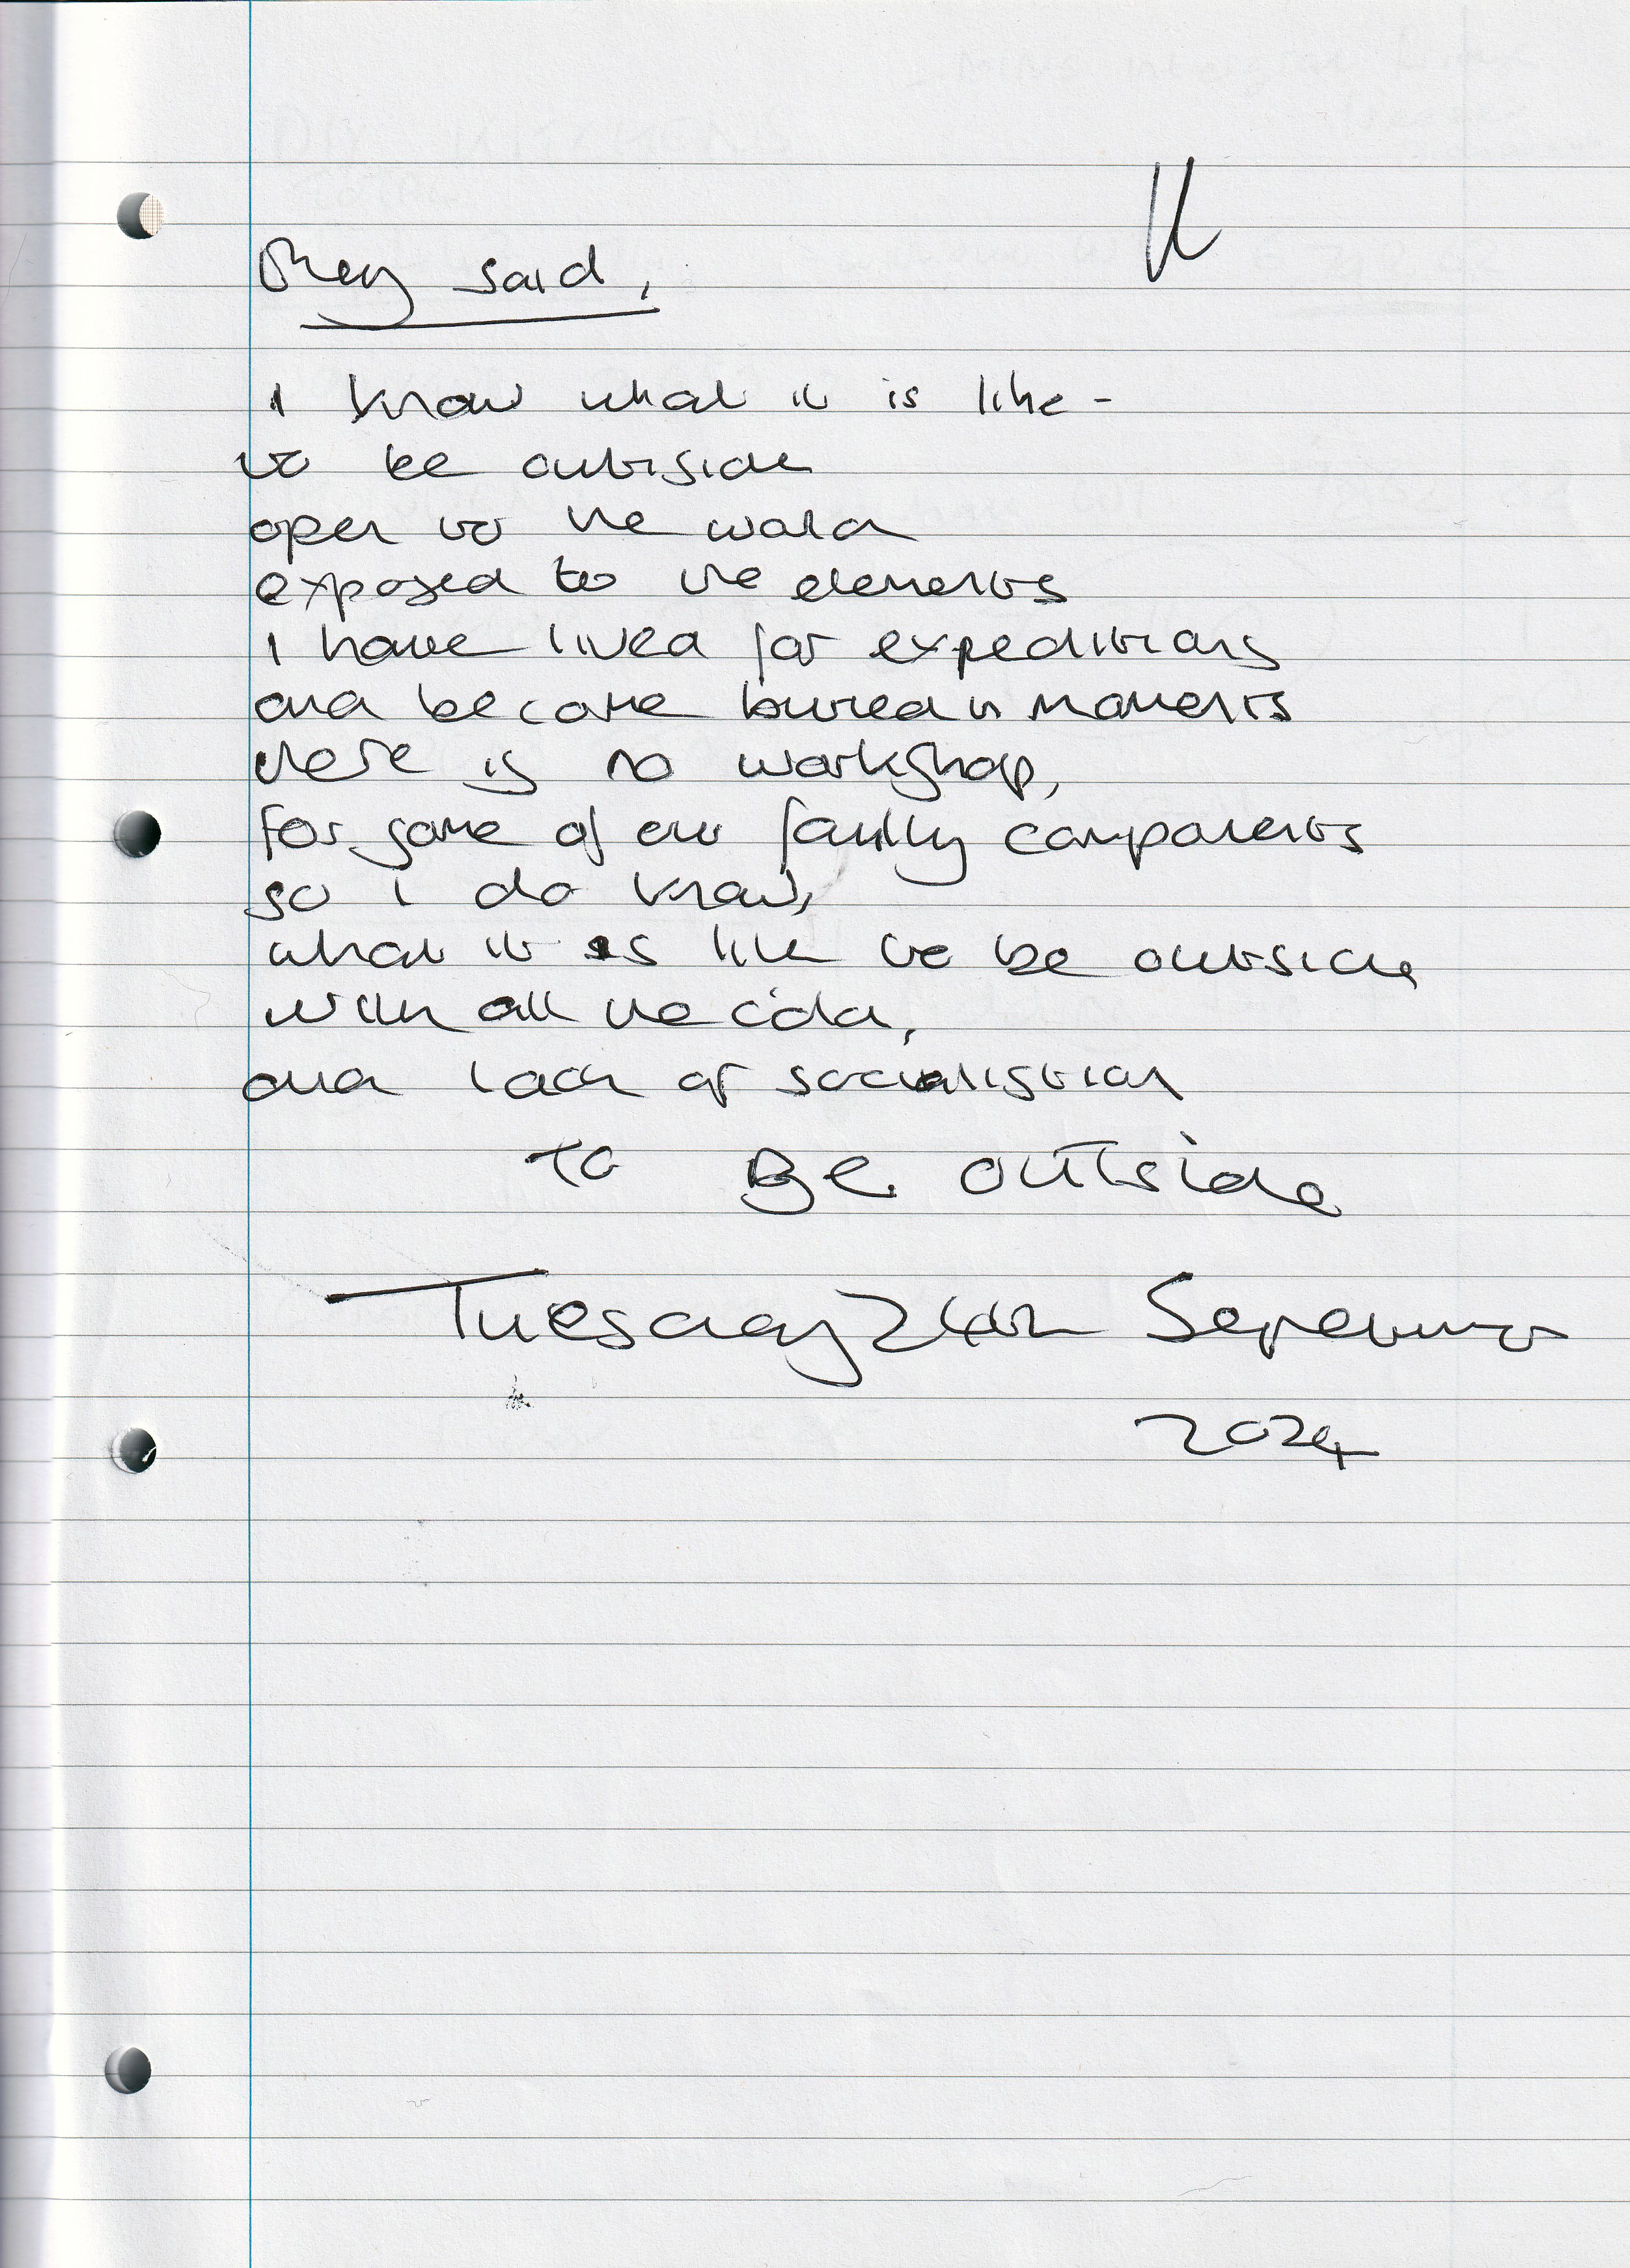 They said,
I know what it is like -
to be outside
open to the world
exposed to the elements
I have lived for expeditions
and become buried in moments
there is no workshop,
for some of our faulty components
so I do know,
what it is like to be outside,
with all the cold,
and lack of socialistion
To Be outside
Tuesday 24th September
2024